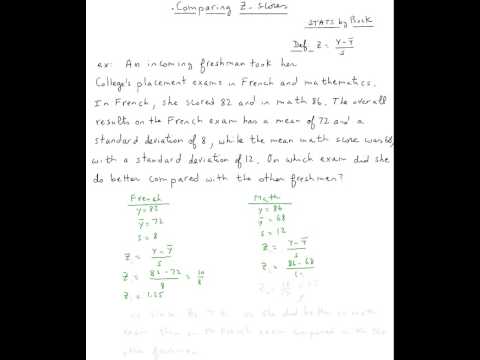 Comparing Z-Scores
STATS by Bock
Def. Z = y-ȳ/s
ex: An incoming freshman took her
College's placement exams in French and mathematics.
In French, she scored 82 and in math 86. The overall
results on the French exam has a mean of 72 and a
standard deviation of 8, while the mean math score was 68,
with a standard deviation of 12. On which exam did she
do better compared with the other freshmen?
French Math
y = 82 y = 86
ȳ = 72 ȳ = 68
s = 8 s = 12
Z = y-ȳ/s Z = y-ȳ/s
Z = 82-72/8 = 10/8 Z = 86-68/
Z = 1.25
she did better
exam than on the French exam compared
other freshmen